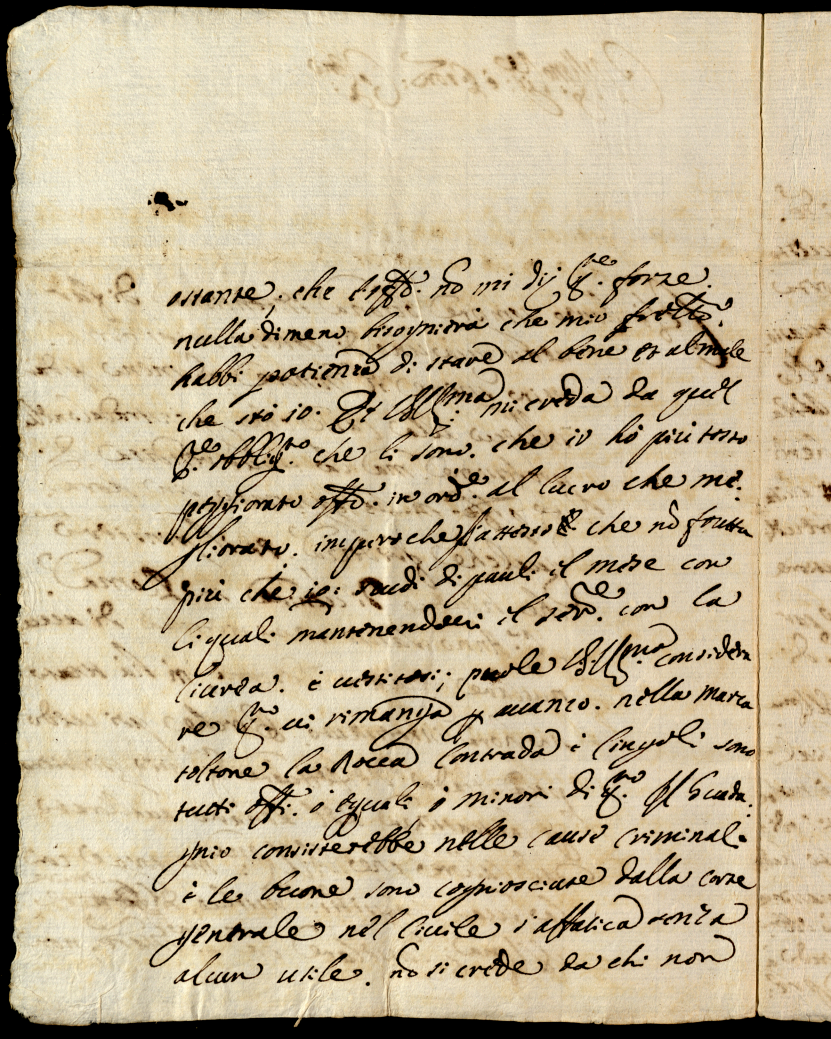 ostante, che l'offo. nō mi dij qe. forze.
nulla dimeno bisognierà che mio frello.
habbi patienza di stare al bene et al male
che stò io. Et VSIllma. mi creda da quel
che li sono. che io hò più tosto
peggiorato offo. in orde. al lucro che me:
gliorato. imperoche che nō frutta
più che io: scudi di pauli il mese con
li quali mantenendoci il serre. con la
e vestitosi; puole VSIllma. considera
re qto. vi rimanga p avanzo. nella marca
toltone la Rocca Contrada e Cingoli sono
tutti offi. ò eguali ò minori di qto. Il Guada:
gnio consisterebbe nelle cause criminali
e le buone sono cogniosciute dalla corte
generale nel Civile s'affatica senza
alcun utile. nō si crede da chi non